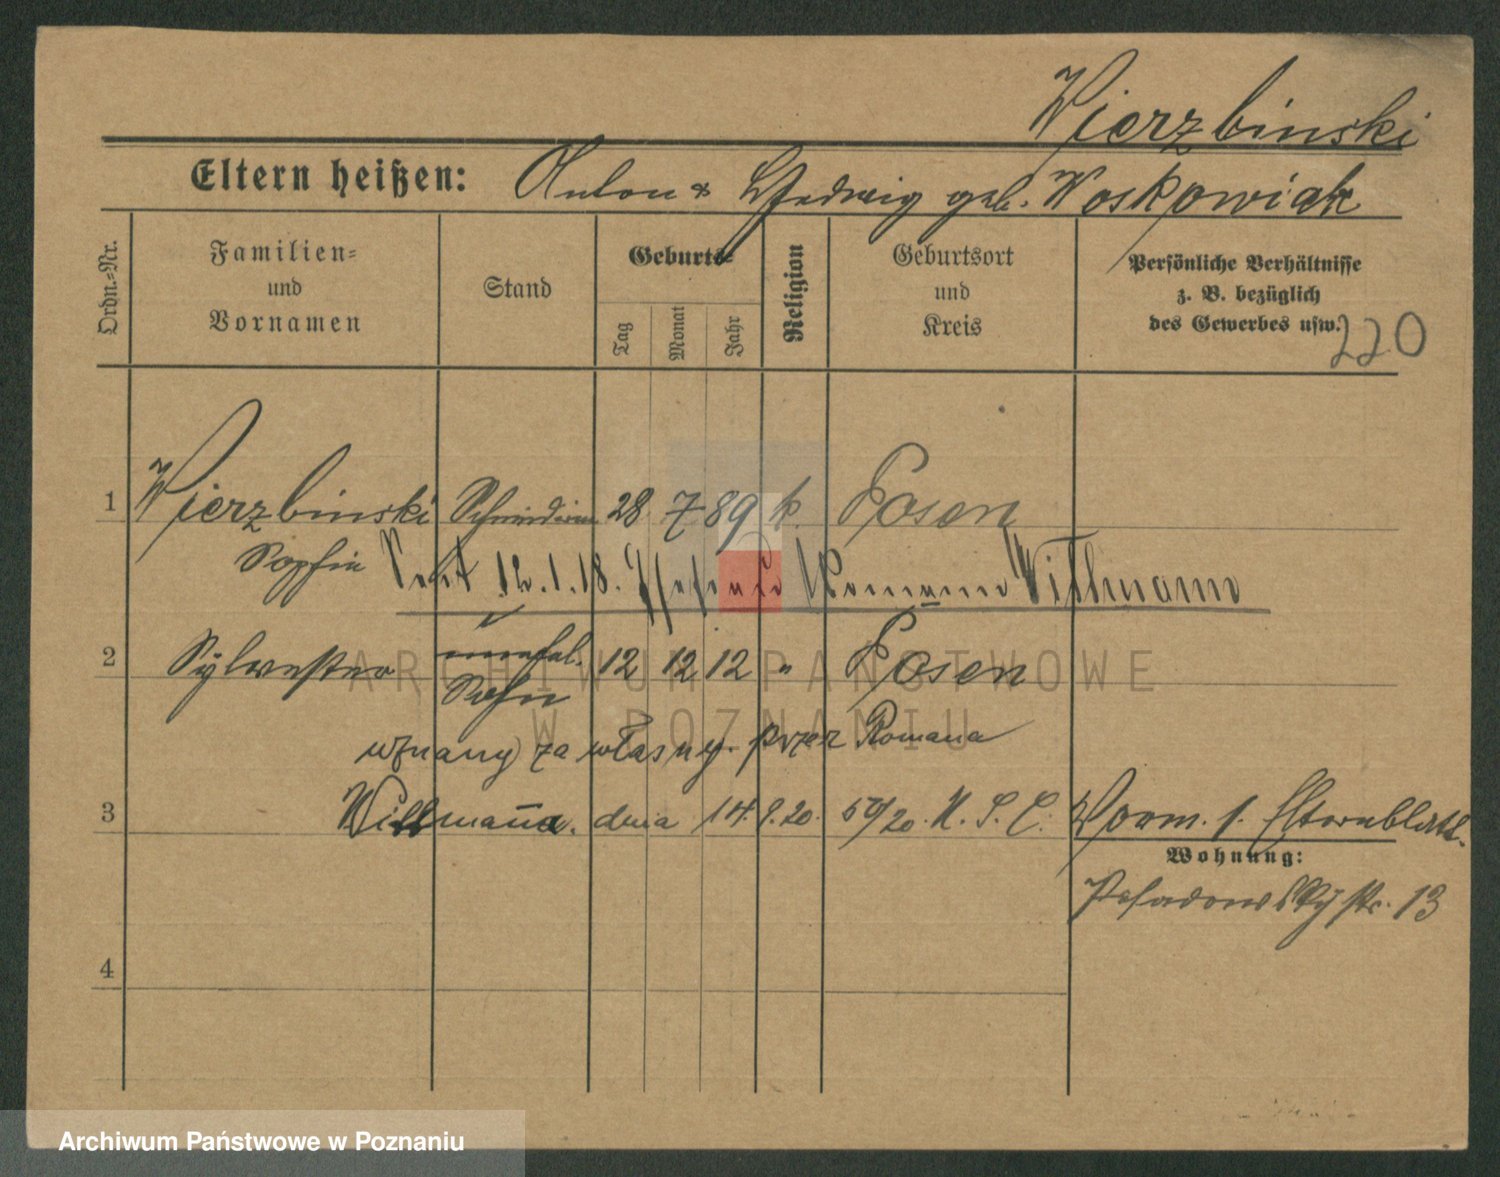 Wierzbinski
Eltern heißen: Anton & Hedwig geb. Woskowiak
Ordn.-Nr.
Familien-
und
Vornamen
Stand
Geburts-
Tag
Monat
Jahr
Religion
Geburtsort
und
Kreis
Persönliche Verhältnisse
z. B. bezüglich
des Gewerbes usw.
220
1 Wierzbinski Schneiderin 28 7 89 k. Posen
Sophie
12.1.18. Ehefrau Romann Wittmann
2 Sylvester unehel. 12 12 12 " Posen
Sohn
uznany za własny przez Romana
3 Wittmanna. dnia 14.9.20. 59/20. U.S.C. Vorm. 1. Elternblatt.
Wohnung:
Posadowskystr. 13
4
ARCHIWUM PAŃSTWOWE
W POZNANIU
Archiwum Państwowe w Poznaniu